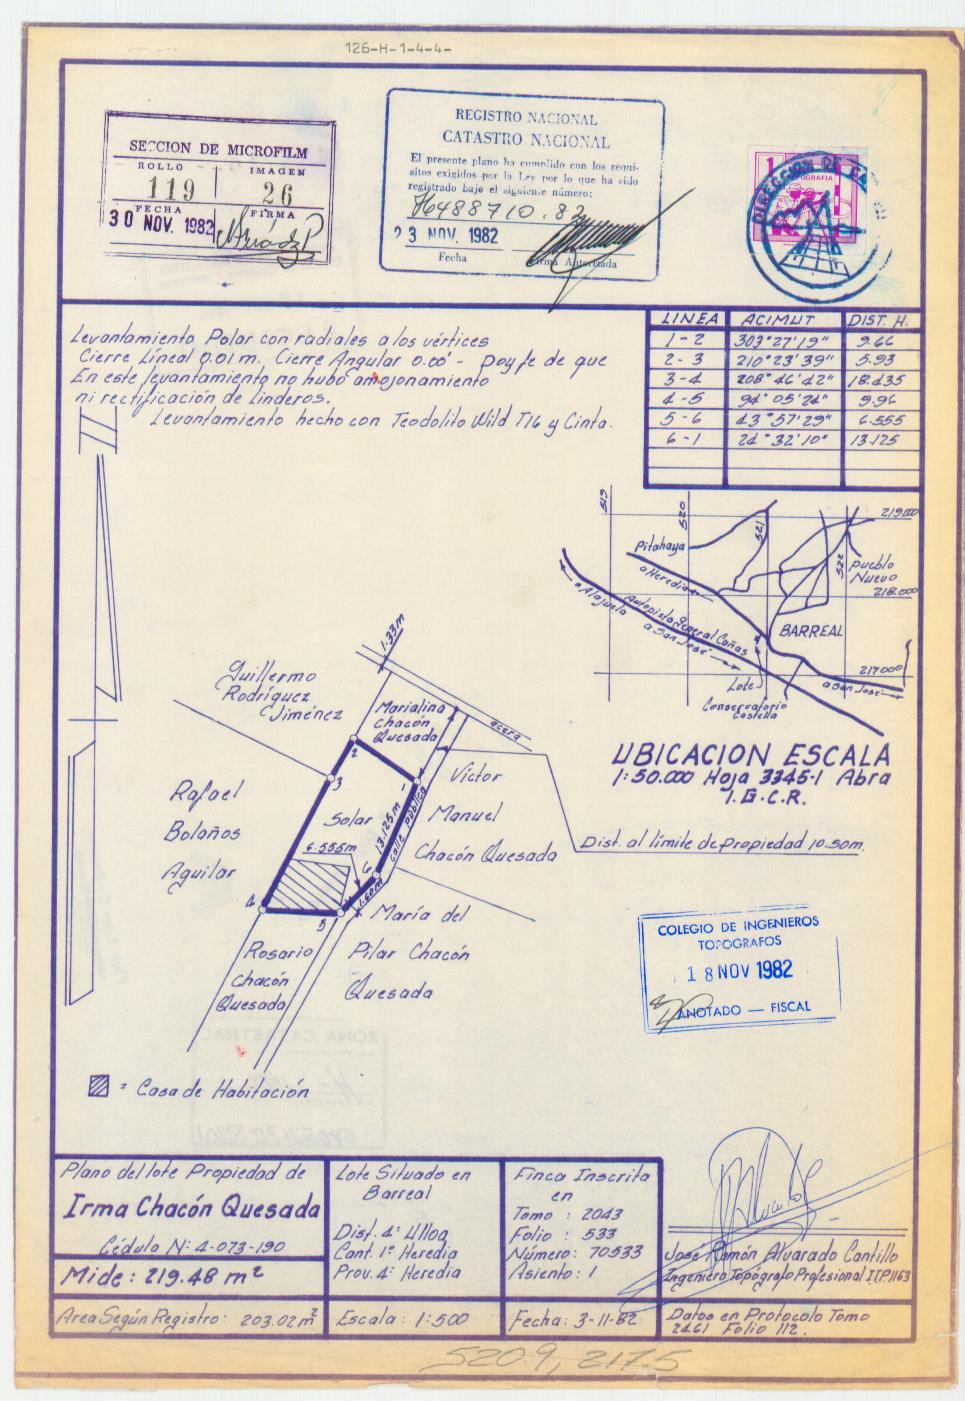 126-H-1-4-4-
SECCION DE MICROFILM
ROLLO IMAGEN
119 26
FECHA FIRMA
30 NOV. 1982
REGISTRO NACIONAL
CATASTRO NACIONAL
El presente plano ha cumplido con los requi-
sitos exigidos por la Ley por lo que ha sido
registrado bajo el siguiente número:
H6488710.82
23 NOV. 1982
Fecha Firma Autorizada
Levantamiento Polar con radiales a los vértices
Cierre Líneal 0.01 m. Cierre Angular 0.00' - Doy fe de que
En este levantamiento no hubo amojonamiento
ni rectificación de linderos.
Levantamiento hecho con Teodolito Wild T16 y Cinta.
LINEA ACIMUT DIST. H.
1-2 303°27'19" 9.66
2-3 210°23'39" 5.93
3-4 208°46'42" 18.435
4-5 94°05'24" 9.96
5-6 43°57'29" 6.555
6-1 24°32'10" 13.125
519
520
521
522
219000
Pitahaya
a Heredia
Pueblo
Nuevo
218.000
a Alajuela
Autopista General Cañas
a San José
BARREAL
217000
Lote
a San José
Conservatorio
Castella
UBICACION ESCALA
1:50.000 Hoja 3345-1 Abra
I.G.C.R.
1.33m
Guillermo
Rodríguez
Jiménez
Marialina
Chacón
Quesada
acera
Rafael
Bolaños
Aguilar
2
3
1
Solar
13.125m
calle pública
6.555m
6
1.60m
4
5
Víctor
Manuel
Chacón Quesada
Dist. al límite de propiedad 10.50m.
María del
Pilar Chacón
Quesada
Rosario
Chacón
Quesada
COLEGIO DE INGENIEROS
TOPOGRAFOS
18 NOV 1982
ANOTADO — FISCAL
= Casa de Habitación
Plano del lote Propiedad de
Irma Chacón Quesada
Cédula N: 4-073-190
Mide: 219.48 m²
Area Según Registro: 203.02 m²
Lote Situado en
Barreal
Dist. 4º Ulloa
Cant. 1º Heredia
Prov. 4º Heredia
Escala: 1:500
Finca Inscrita
en
Tomo : 2043
Folio : 533
Número: 70533
Asiento: 1
Fecha: 3-11-82
José Ramón Alvarado Cantillo
Ingeniero Topógrafo Profesional I.T.P.1163
Datos en Protocolo Tomo
2461 Folio 112.
520.9, 217.5